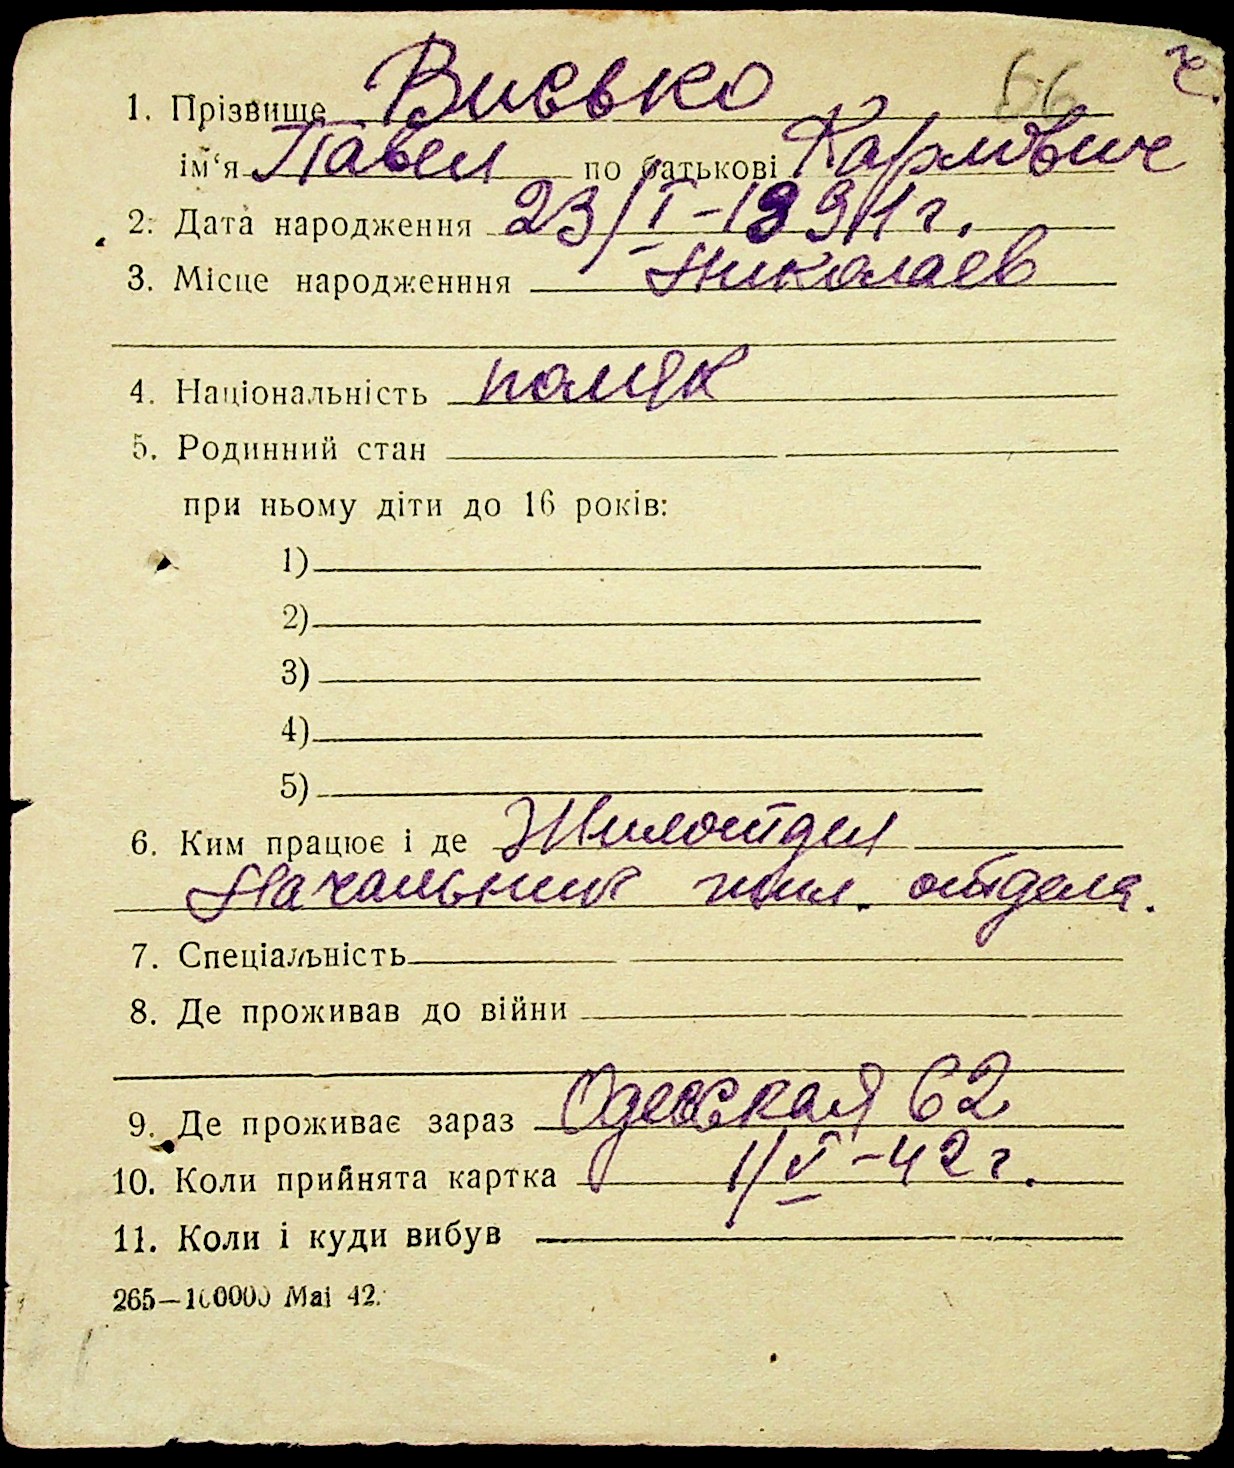 66 ч.
1. Прізвище Висько
ім‘я Павел по батькові Карлович
2. Дата народження 23/I-1891 г.
3. Місце народженння Николаев
4. Національність поляк
5. Родинний стан
при ньому діти до 16 років:
1)
2)
3)
4)
5)
6. Ким працює і де Жилотдел
Начальник жил. отдела.
7. Спеціальність
8. Де проживав до війни
9. Де проживає зараз Одесская 62
10. Коли прийнята картка 1/V-42 г.
11. Коли і куди вибув
265—100000 Mai 42.